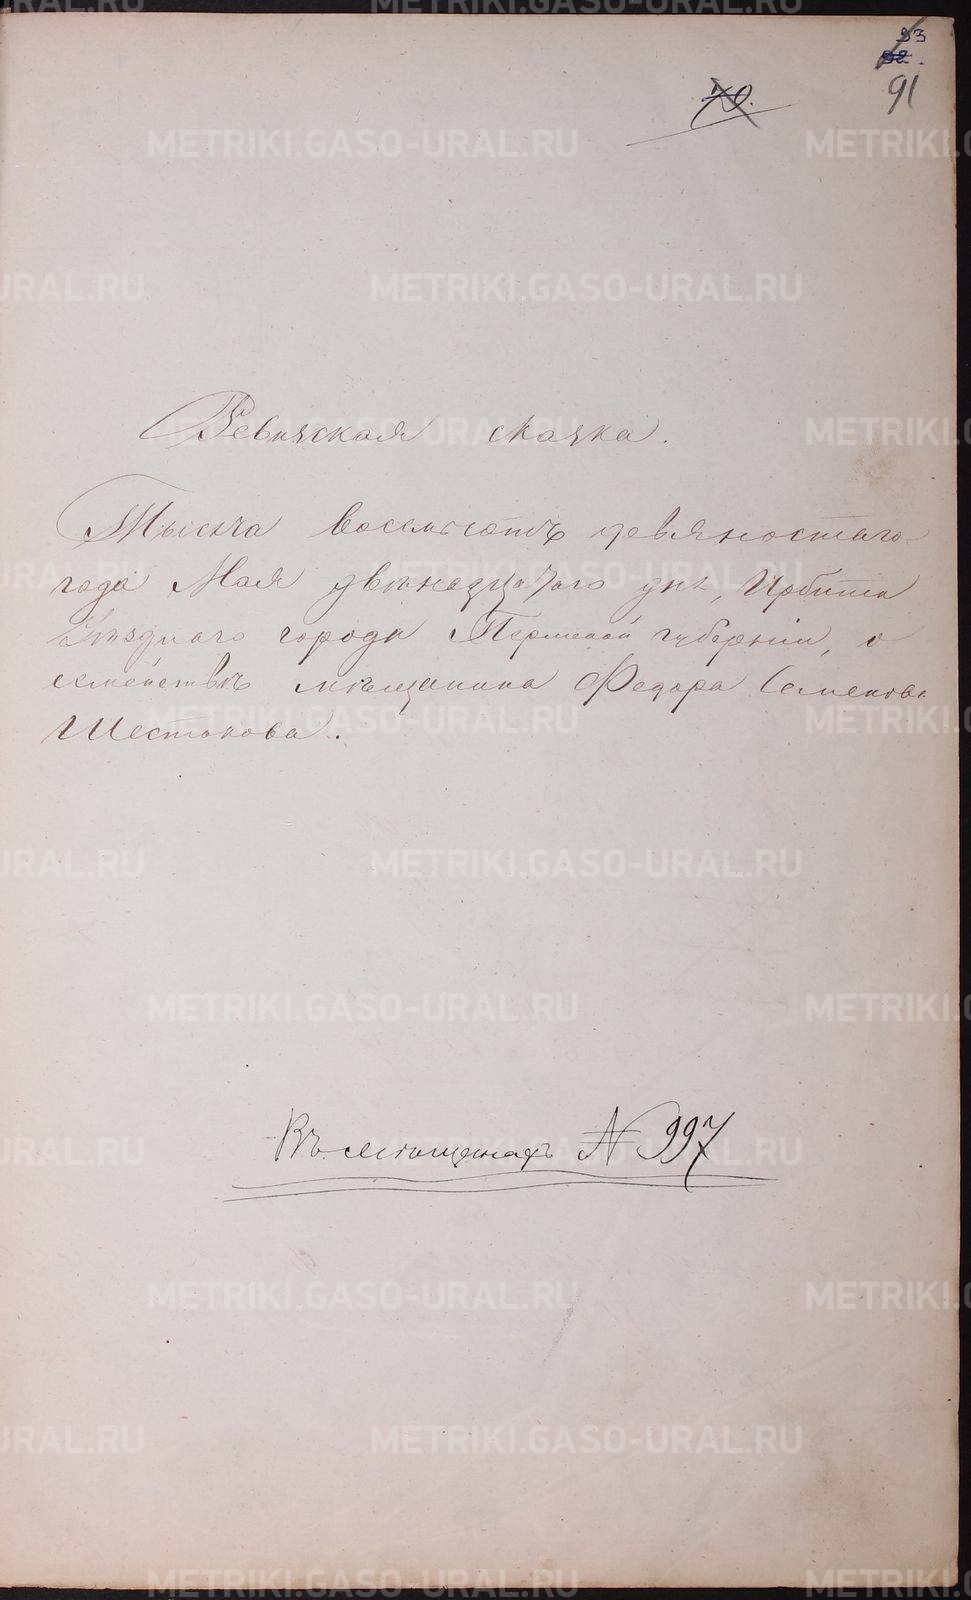 53
91
70.
Ревизская сказка.
Тысяча восемьсотъ девяностаго
года Мая двѣнадцатого дня, Ирбита
Уѣзднаго города Пермской губерніи, о
семействѣ мѣщанина Федора Семенова
Шестакова.
Въ мѣщанахъ № 997
METRIKI.GASO-URAL.RU